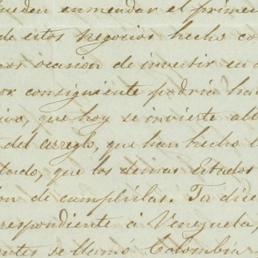 pueden enmendar el prime
de estos negocios hecho co
por ocasion de invertir en
por consiguiente podria ha
ivo, que hoy se invierte all
del arreglo, que han hecho l
tado, que los demas Estados
on de cumplirlas. Ya die
respondiente á Venezuela,
antes se llamó Colombia